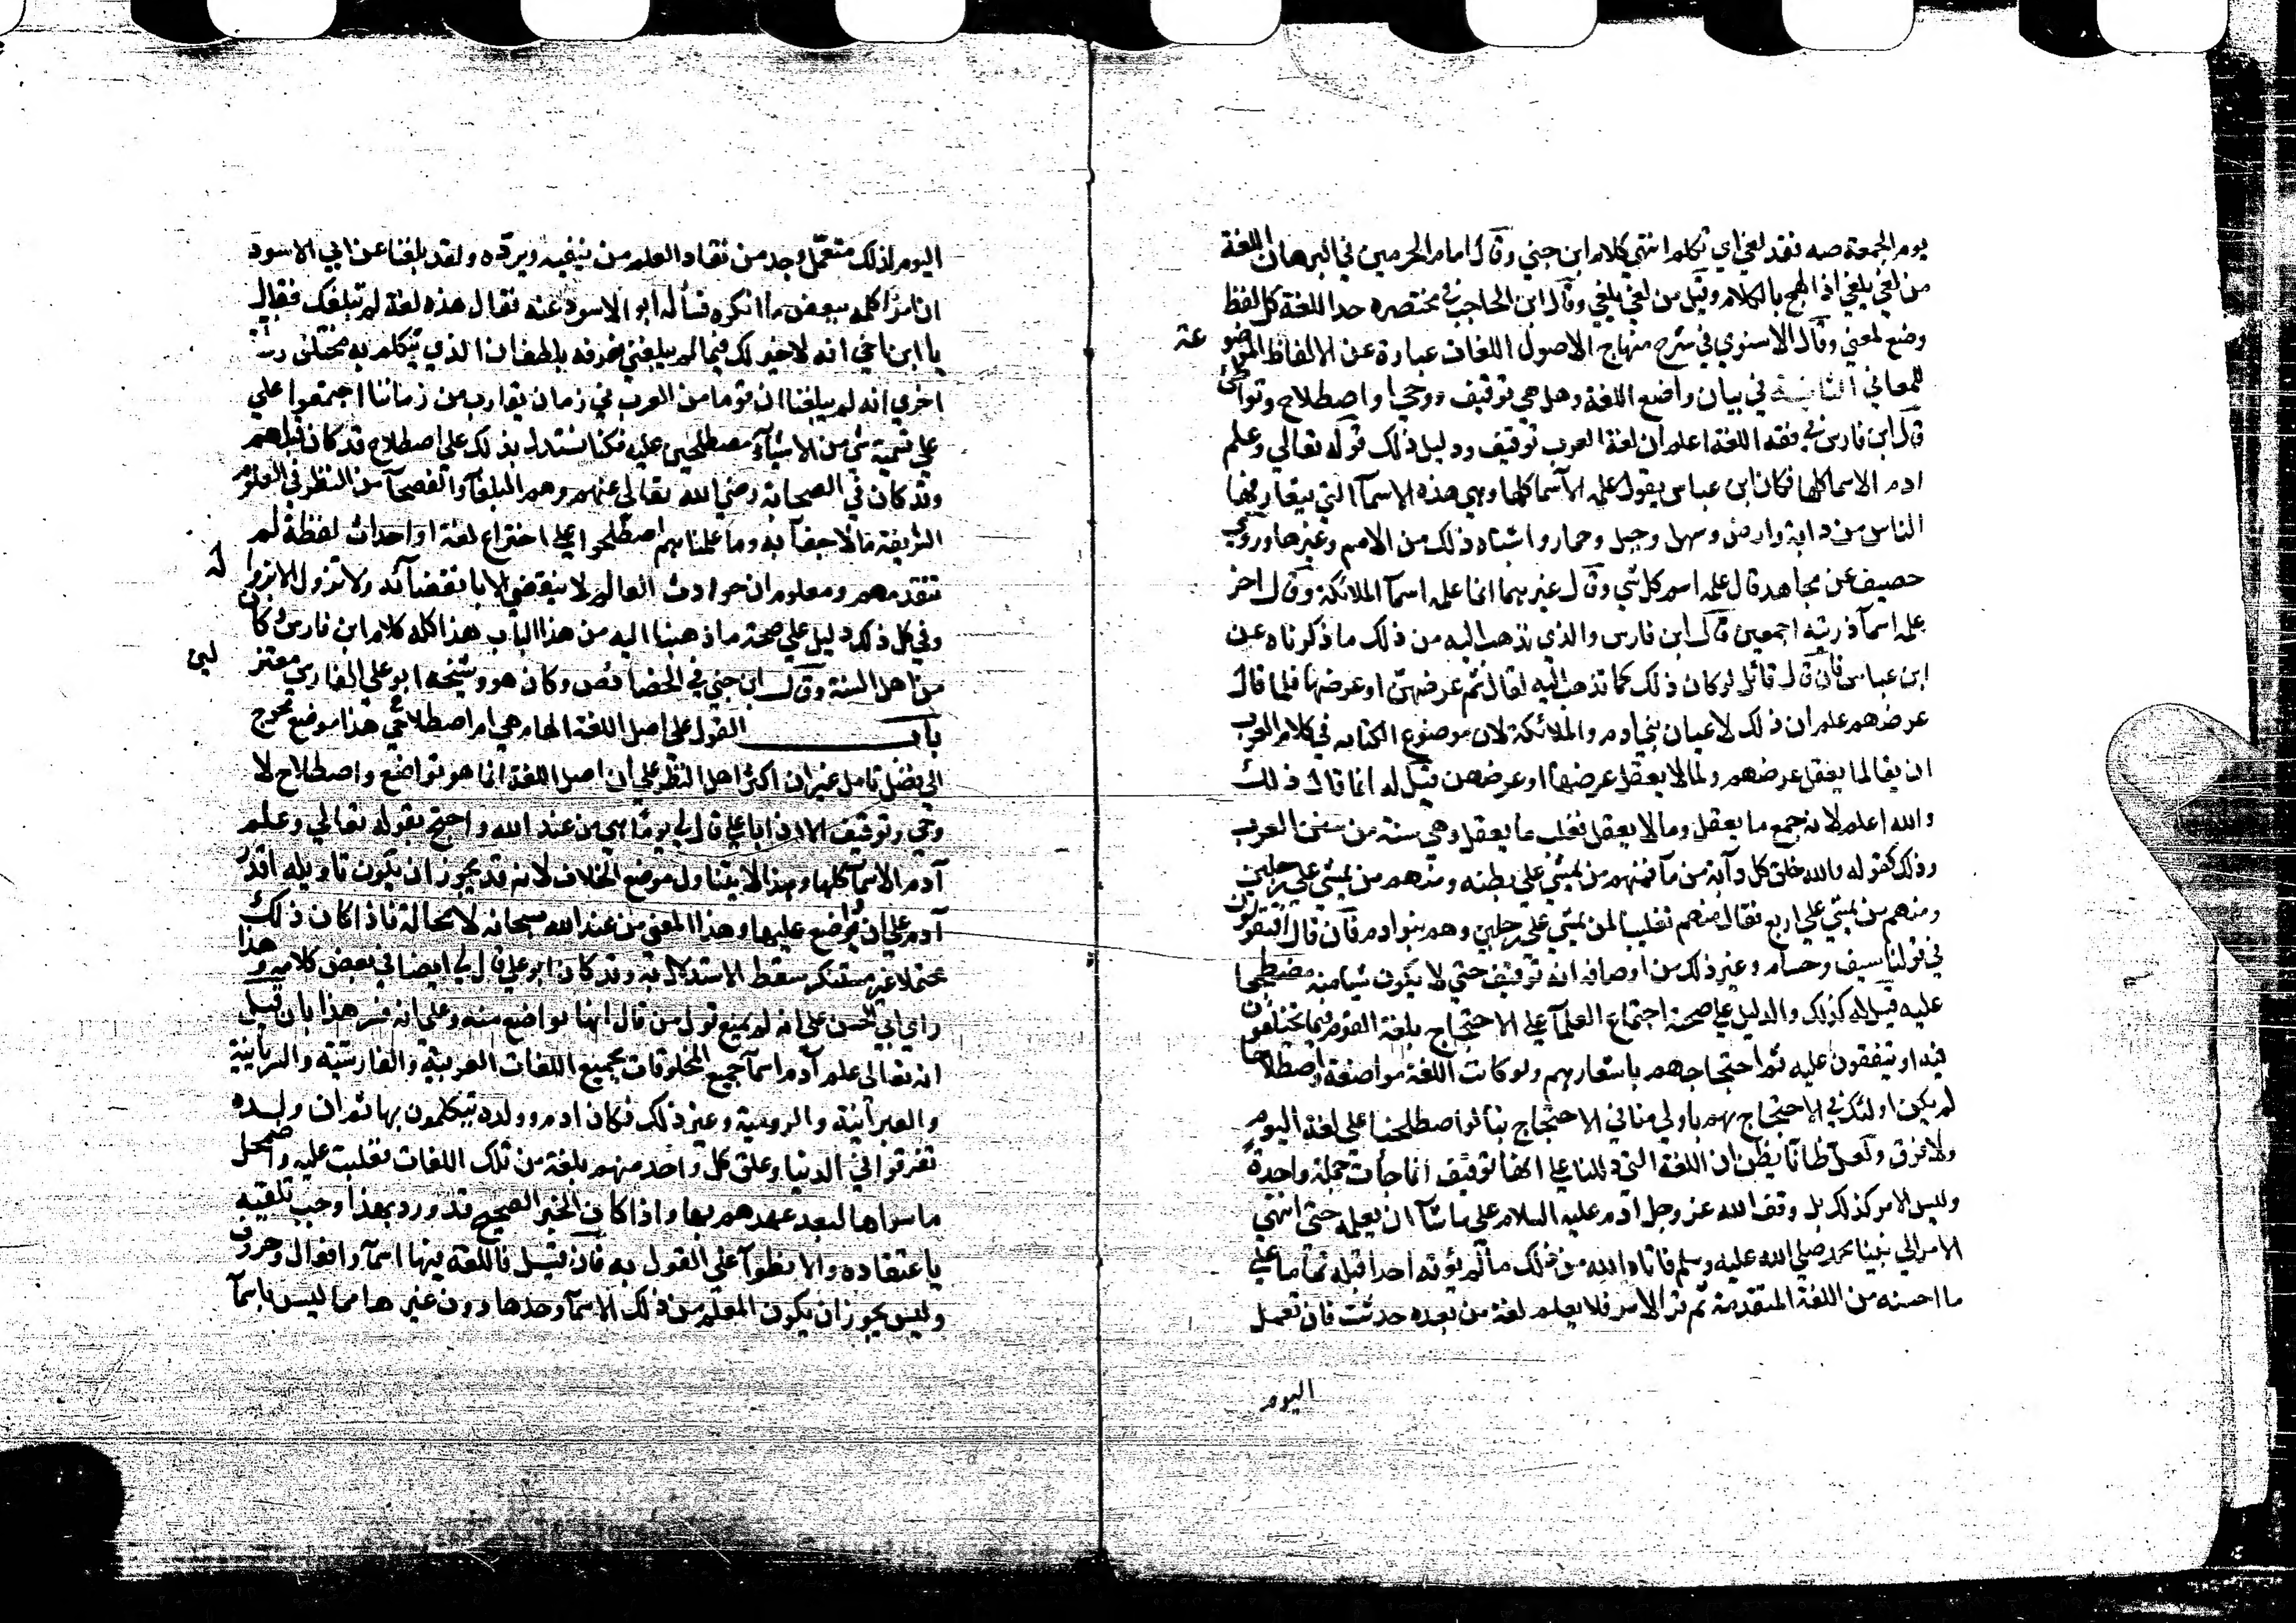 يوم الجمعة صه فقد لغي اي تكلم انتهي كلام ابن جني وقال امام الحرمين في البرهان اللغة
من لغي يلغي اذا لهج بالكلام وقيل من لغي يلغي وقال ابن الحاجب في مختصره حد اللغة كل لفظ
وضع لمعني وقال الاسنوي في شرح منهاج الاصول اللغات عبارة عن الالفاظ الموضوعة
للمعاني الثانية في بيان واضع اللغة وهل هي توقيف ووحي او اصطلاح وتواطئ
قال ابن فارس في فقه اللغة اعلم ان لغة العرب توقيف ودليل ذلك قوله تعالي وعلم
ادم الاسما كلها فكان ابن عباس يقول علمه الاسما كلها وهي هذه الاسمآ التي يتعارفها
الناس من دابة وارض وسهل وجبل وحمار واشباه ذلك من الامم وغيرها وروي
خصيف عن مجاهد قال علمه اسم كل شي وقال غيرهما انما علمه اسمآ الملائكة وقال اخر
علمه اسمآ ذريته اجمعين قال ابن فارس والذي نذهب اليه من ذلك ما ذكرناه عن
ابن عباس فان قال قائل لو كان ذلك كما تذهب اليه لقال ثم عرضهن او عرضها فلما قال
عرضهم علم ان ذلك لاعيان بني ادم والملائكة لان موضوع الكنايه في كلام العرب
ان يقال لما يعقل عرضهم ولما لا يعقل عرضها او عرضهن قيل له انما قال ذلك
والله اعلم لانه جمع ما يعقل وما لا يعقل فغلب ما يعقل وهي سنة من سنن العرب
وذلك كقوله والله خلق كل دآبة من مآ فمنهم من يمشي علي بطنه ومنهم من يمشي علي رجلين
ومنهم من يمشي علي اربع فقال منهم تغليبا لمن يمشي علي رجلين وهم بنو ادم فان قال افتقولون
في قولنا سيف وحسام وغير ذلك من اوصافه انه توقيف حتي لا يكون شيا منه مصطلحا
عليه قيل له كذلك والدليل علي صحته اجتماع العلمآ علي الاحتجاج بلغة القوم فيما يختلفون
فيه او يتفقون عليه ثم احتجاجهم باشعارهم ولو كانت اللغة مواضعة واصطلاحا
لم يكن اولئك في الاحتجاج بهم باولي منا في الاحتجاج بنا لو اصطلحنا علي لغة اليوم
ولا فرق ولعل ظانا يظن ان اللغة التي دللنا علي انها توقيف انما جأت جملة واحدة
وليس الامر كذلك بل وقف الله عز وجل ادم عليه السلام علي ما شآ ان يعلمه حتي انتهي
الامر الي نبينا محمد صلي الله عليه وسلم فاتاه الله من ذلك ما لم يؤته احدا قبله تماما علي
ما احسنه من اللغة المتقدمة ثم قر الامر فلا يعلم لغة من بعده حدثت فان تعمل
اليوم
اليوم لذلك متعمل وجد من نقاد العلم من ينفيه ويرده ولقد بلغنا عن ابي الاسود
ان امرا كلمه ببعض ما انكره فسأله ابو الاسود عنه فقال هذه لغة لم تبلغك فقال
يا ابن اخي انه لا خير لك فيما لم يبلغني فعرفه بلطف ان الذي تكلم به مختلق
اخري انه لم يبلغنا ان قوما من العرب في زمان يقارب من زماننا اجتمعوا علي
علي تسمية شي من الاشيآء مصطلحين عليه فكنا نستدل بذلك علي اصطلاح قد كان قبلهم
وقد كان في الصحابة رضي الله تعالي عنهم وهم البلغآ والفصحآ من النظر في العلوم
الشريفة ما لا خفآ به وما علمناهم اصطلحوا علي اختراع لغة او احداث لفظة لم
تتقدمهم ومعلوم ان حوادث العالم لا ينقضي الا بانقضآئه ولا تزول الا بزواله
وفي كل ذلك دليل علي صحة ما ذهبنا اليه من هذا الباب هذا كله كلام ابن فارس وكان
من اهل السنة وقال ابن جني في الخصائص وكان هو وشيخه ابو علي الفارسي معتزليين
باب القول علي اصل اللغة الهام هي ام اصطلاحي هذا موضع محوج
الي فضل تامل غير ان اكثر اهل النظر علي ان اصل اللغة انما هو تواضع واصطلاح لا
وحي وتوقيف الا ان ابا علي قال لي يوما هي من عند الله واحتج بقوله تعالي وعلم
آدم الاسمآ كلها وهذا لا يتناول موضع الخلاف لانه قد يجوز ان يكون تاويله اقدر
آدم علي ان واضع عليها وهذا المعني من عند الله سبحانه لا محالة فاذا كان ذلك
محتملا غير مستنكر سقط الاستدلال به وقد كان ابو علي قال لي ايضا في بعض كلامه وهذا
راي ابي الحسن علي انه لم يمنع قول من قال انها تواضع منه وعلي انه فسر هذا بان قيل
انه تعالي علم آدم اسمآ جميع المخلوقات بجميع اللغات العربية والفارسية والسريانية
والعبرآنية والرومية وغير ذلك فكان ادم وولده يتكلمون بها ثم ان ولده
تفرقوا في الدنيا وعلق كل واحد منهم بلغة من تلك اللغات فغلبت عليه واضمحل
ما سواها لبعد عهدهم بها واذا كان الخبر الصحيح قد ورد بهذا وجب تلقيه
باعتقاده والانطوآ علي القول به فان قيل فاللغة فيها اسمآ وافعال وحروف
وليس يجوز ان يكون المعلم من ذلك الاسمآ وحدها دون غيرها مما ليس باسمآ